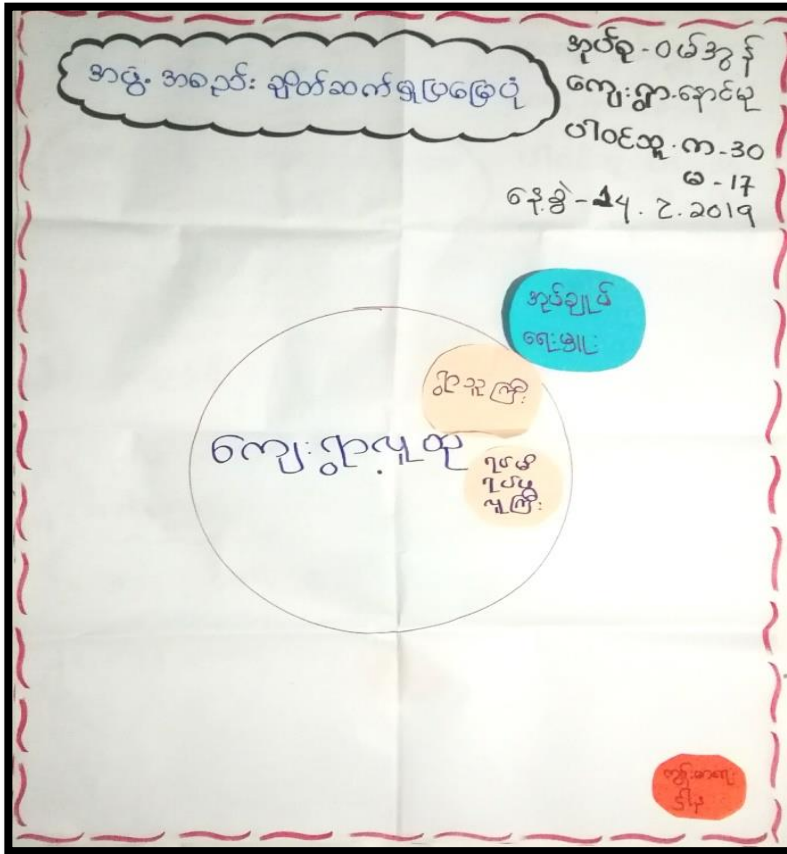 အဖွဲ့ အစည်း ချိတ်ဆက်မှုပြမြေပုံ
အုပ်စု - ဝမ်အွန်
ကျေးရွာ-နောင်မု
ပါဝင်သူ. ကျ - 30
မ - 17
နေ့စွဲ - 24. 7. 2019
အုပ်ချုပ်
ရေးမှူး
ရွာသူကြီး
ကျေးရွာလူထု
ရပ်မိ
ရပ်ဖ
လူကြီး
ကျန်းမာရေး
ဌါန